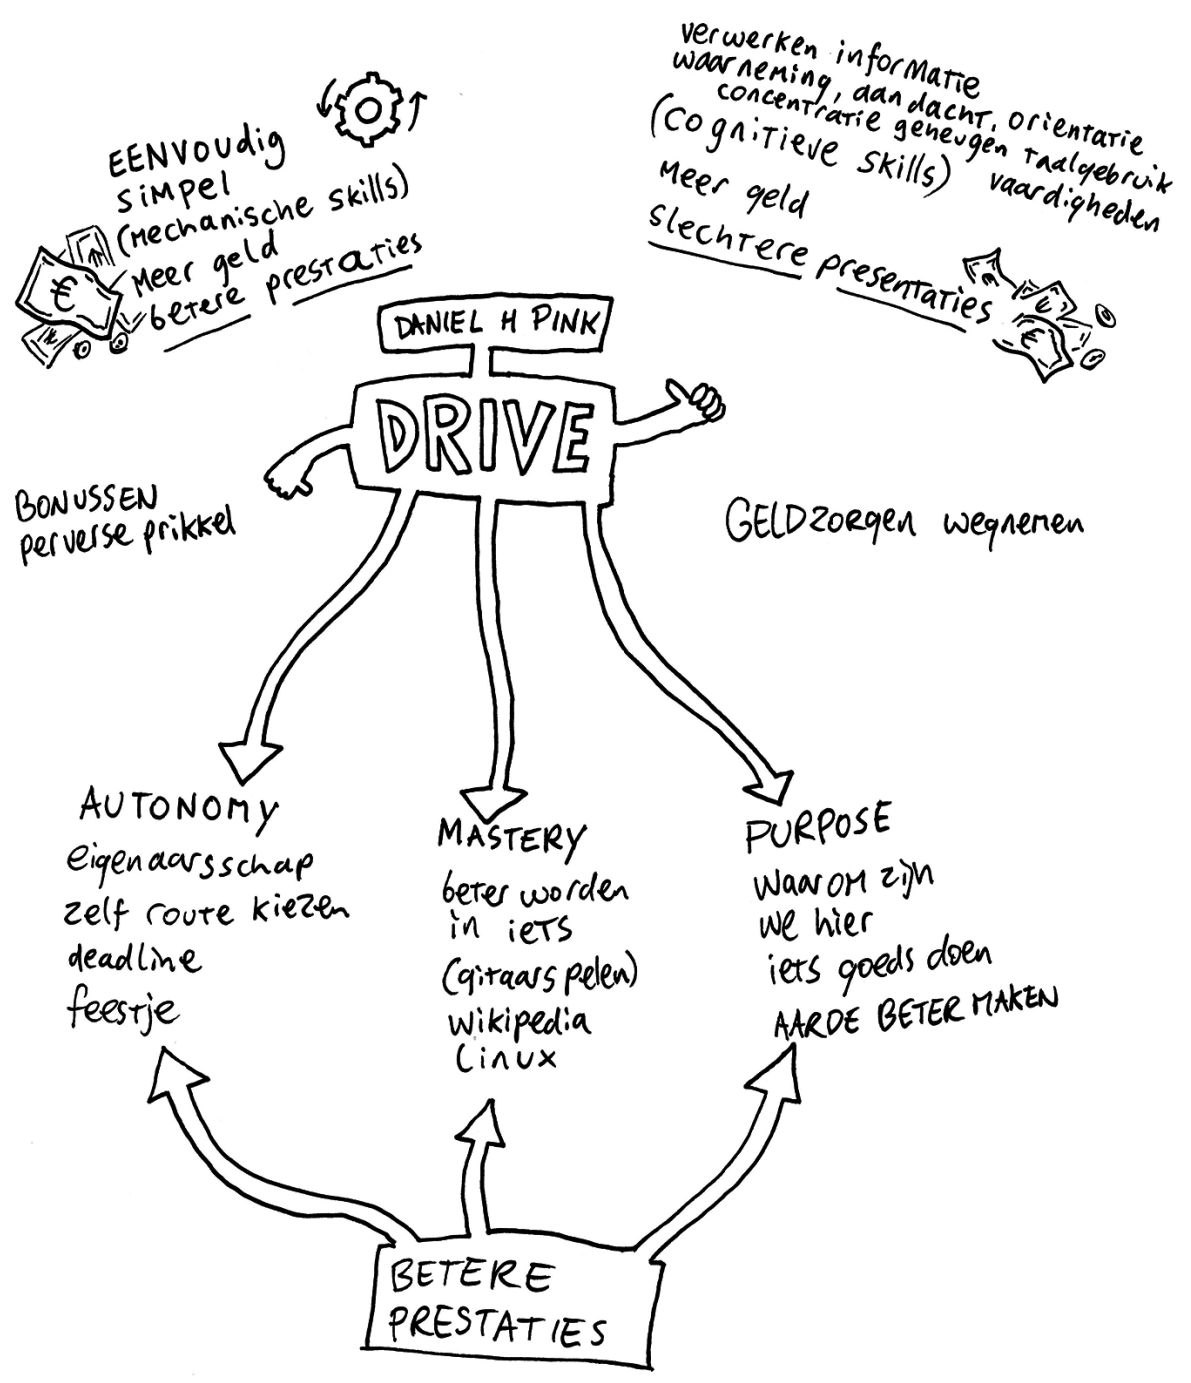 EENVOUDIG
SIMPEL
(MECHANISCHE SKILLS)
MEER geld
betere prestaties
€
verwerken informatie
waarneming, aandacht, orientatie
concentratie geheugen taalgebruik
vaardigheden
(cognitieve skills)
Meer geld
slechtere presentaties
€
€
DANIEL H PINK
DRIVE
BONUSSEN
perverse prikkel
GELDZORGEN wegnemen
AUTONOMY
eigenaarsschap
zelf route kiezen
deadline
feestje
MASTERY
beter worden
in iets
(gitaarspelen)
Wikipedia
Linux
PURPOSE
Waarom zijn
we hier
iets goeds doen
AARDE BETER MAKEN
BETERE
PRESTATIES